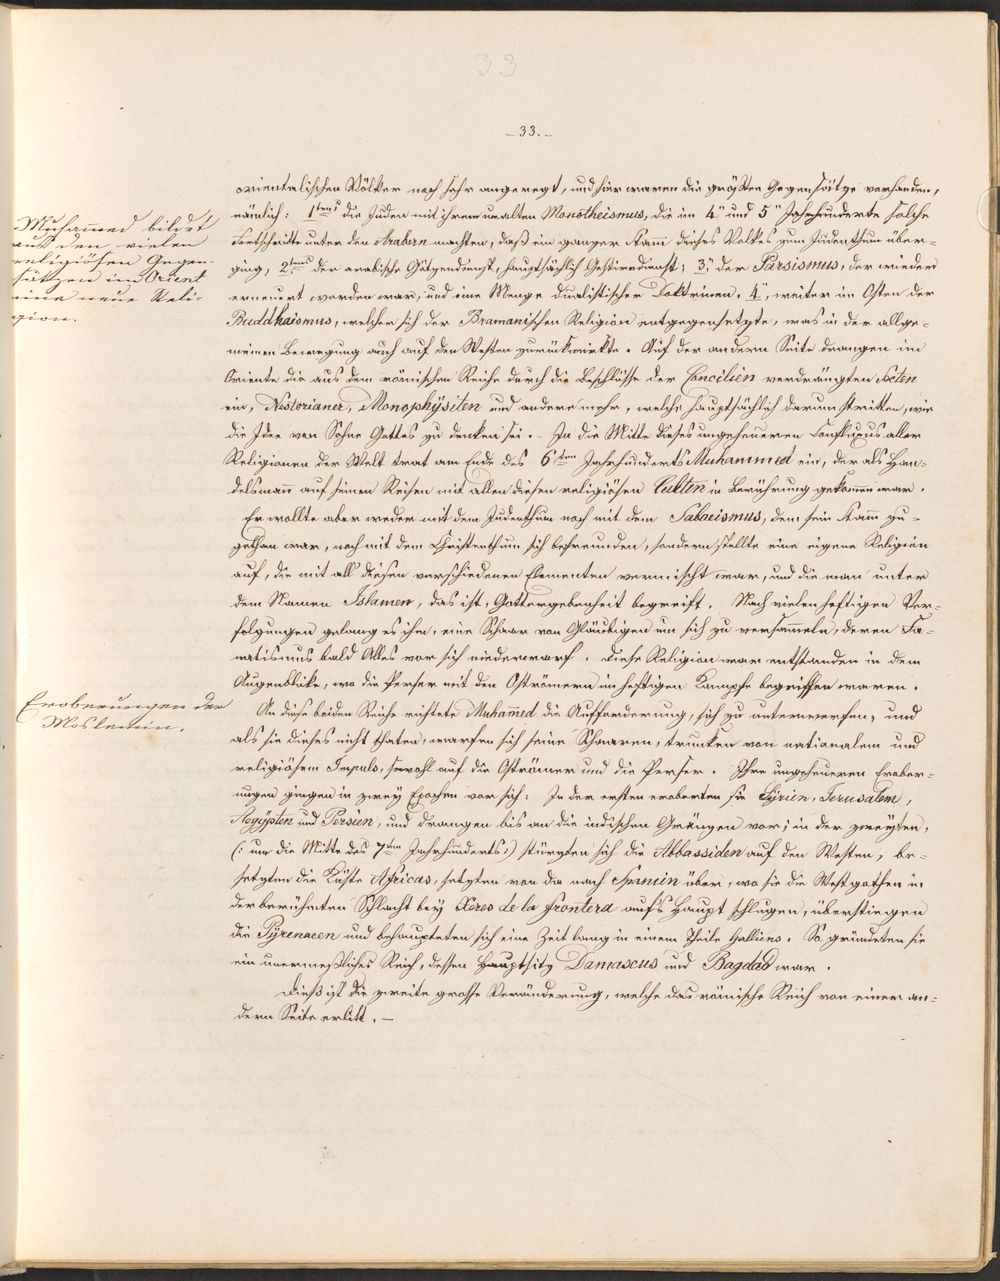 33
– 33. –
orientalischen Völker noch sehr angeregt, und hier waren die größten Gegensätze vorhanden,
nämlich: 1tens die Juden mit ihrem uralten Monotheismus, die im 4" und 5" Jahrhunderte solche
Fortschritte unter den Arabern machten, daß ein ganzer Stamm dieses Volkes zum Judenthum über-
ging, 2tens der arabische Götzendienst, hauptsächlich Gestirndienst; 3" der Parsismus, der wieder
erneuert worden war, und eine Menge dualistischer Doktrinen. 4", weiter im Osten der
Buddhaismus, welcher sich der Bramanischen Religion entgegensetzte, was in der allge-
meinen Bewegung auch auf den Westen zurükwirkte. Auf der andern Seite drangen im
Oriente die aus dem römischen Reiche durch die Beschlüsse der Concilien verdrängten Secten
ein, Nestorianer, Monophÿsiten und andere mehr, welche hauptsächlich darum stritten, wie
die Idee von Sohne Gottes zu denken sei. – In die Mitte dieses ungeheueren Confluxus aller
Religionen der Welt trat am Ende des 6ten Jahrhunderts Muhammed ein, der als Han-
delsmann auf seinen Reisen mit allen diesen religiösen Culten in Berührung gekommen war.
Er wollte aber weder mit dem Judenthum noch mit dem Sabaeismus, dem sein Stamm zu-
gethan war, noch mit dem Christenthum sich befreunden, sondern stellte eine eigene Religion
auf, die mit all' diesen verschiedenen Elementen vermischt war, und die man unter
dem Namen Islamen, das ist, Gottergebenheit begreift. Nach vielen heftigen Ver-
folgungen gelang es ihm, eine Schaar von Gläubigen um sich zu versammeln, deren Fa-
natismus bald Alles vor sich niederwarf. Diese Religion war entstanden in dem
Augenblike, wo die Perser mit den Oströmern im heftigen Kampfe begriffen waren.
An diese beiden Reiche richtete Muhammed die Aufforderung, sich zu unterwerfen, und
als sie dieses nicht thaten, warfen sich seine Schaaren, trunken von nationalem und
religiösem Impuls, sowohl auf die Oströmer und die Perser. Ihre ungeheueren Erober-
ungen gingen in zwey Epochen vor sich: In der ersten eroberten sie Sÿrien, Jerusalem,
Aegÿpten und Persien, und drangen bis an die indischen Gränzen vor; in der zweÿten,
(: um die Mitte des 7ten Jahrhunderts:) stürzten sich die Abbassiden auf den Westen, be-
setzten die Küste Africas, setzten von da nach Spanien über, wo sie die Westgothen in
der berühmten Schlacht beÿ Xeres de la frontera auf's Haupt schlugen, überstiegen
die Pÿrenaeen und behaupteten sich eine Zeit lang in einem Theile Galliens. So gründeten sie
ein unermeßliches Reich, dessen Hauptsitz Damascus und Bagdad war.
Dieß ist die zweite grosse Veränderung, welche das römische Reich von einer an-
dern Seite erlitt. –
Muhammed bildet
aus den vielen
religiösen Gegen-
sätzen im Orient
eine neue Reli-
gion.
Eroberungen der
Moslemin.